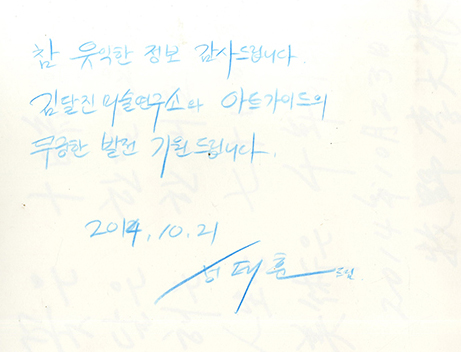 참 유익한 정보 감사드립니다.
김달진미술연구소와 아트가이드의
무궁한 발전 기원드립니다.
2014.10.21
태훈 드림